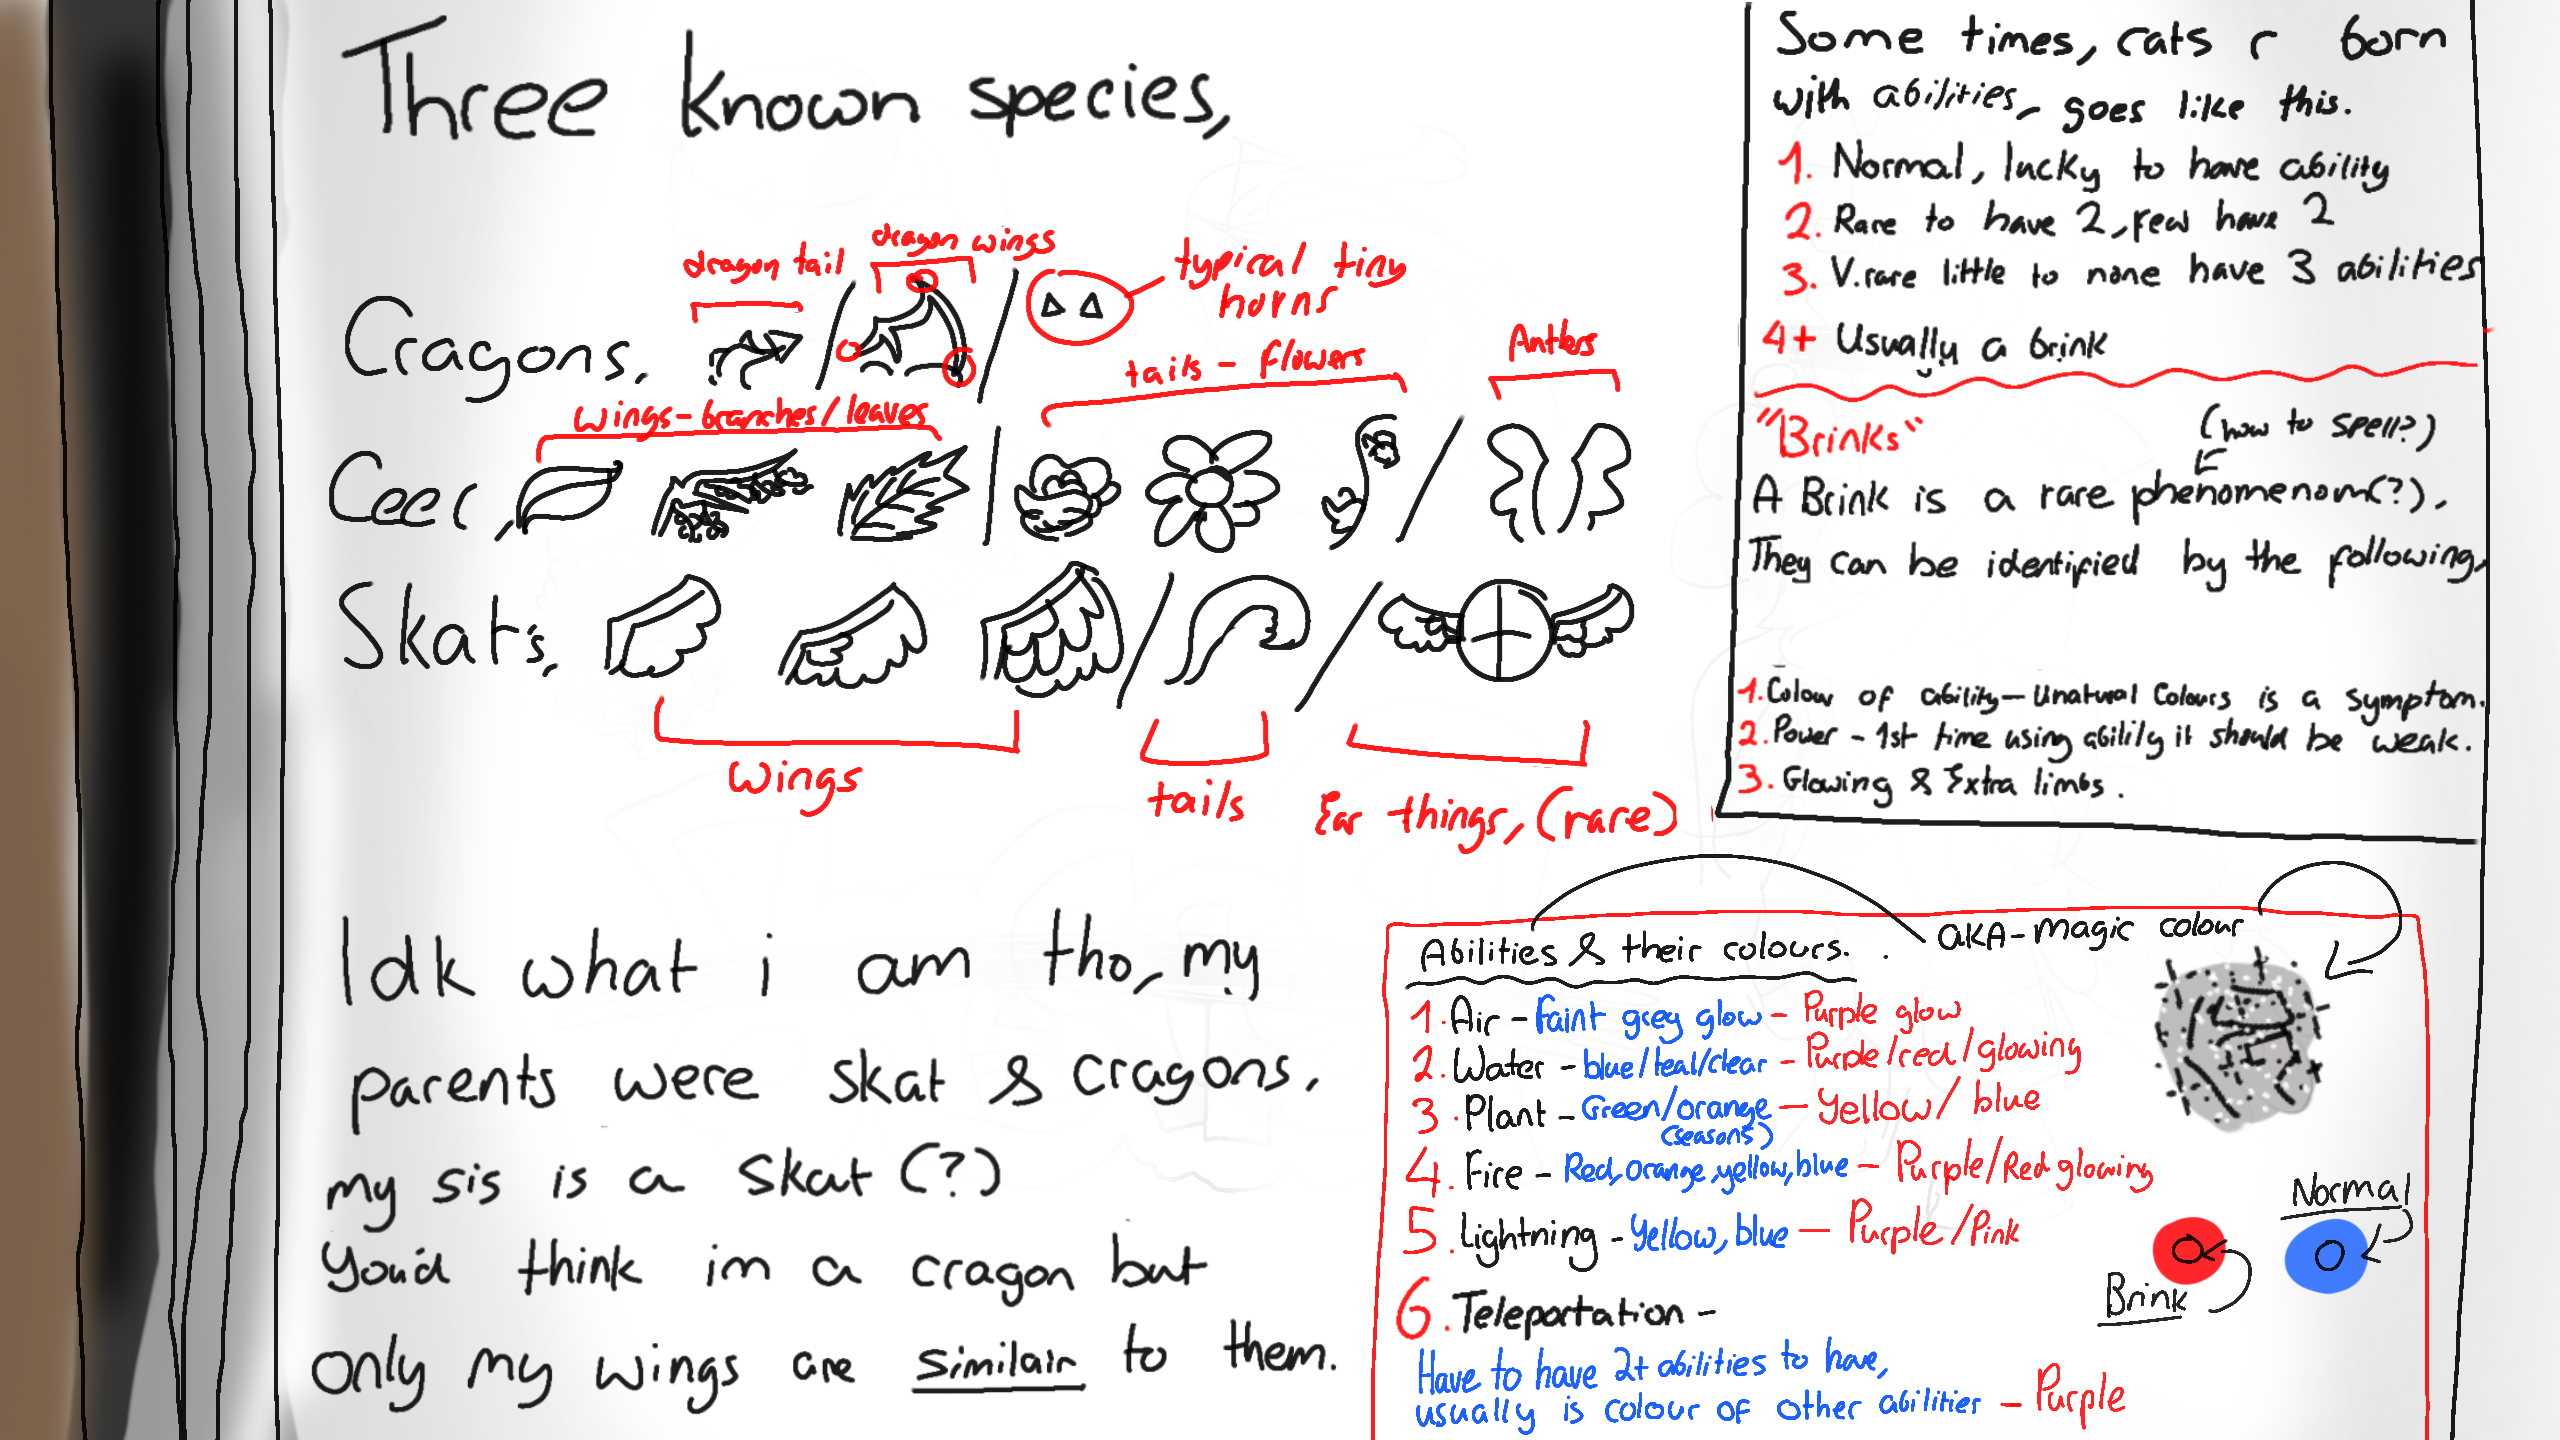 Three known species,
dragon tail
dragon wings
typical tiny
horns
Cragons,
wings-branches/leaves
tails - flowers
Antlers
Ceer,
Skat's,
wings
tails
Ear things, (rare)
Idk what i am tho, my
parents were skat & cragons,
my sis is a skat (?)
You'd think im a cragon but
only my wings are similair to them.
Some times, cats r born
with abilities, goes like this.
1. Normal, lucky to have ability
2. Rare to have 2, few have 2
3. V.rare little to none have 3 abilities
4+ Usually a brink
"Brinks"
(how to spell?)
A Brink is a rare phenomenom(?),
They can be identified by the following,
1. Colour of ability - Unatural Colours is a symptom.
2. Power - 1st time using ability it should be weak.
3. Glowing & Extra limbs.
Abilities & their colours. .
aKA-magic colour
1. Air - Faint grey glow - Purple glow
2. Water - blue/teal/clear - Purple/red/glowing
3. Plant - Green/orange - Yellow/blue
(seasons)
4. Fire - Red, orange, yellow, blue - Purple/Red glowing
5. Lightning - Yellow, blue - Purple/Pink
Normal
Brink
6. Teleportation -
Have to have 2+ abilities to have,
usually is colour of other abilities - Purple